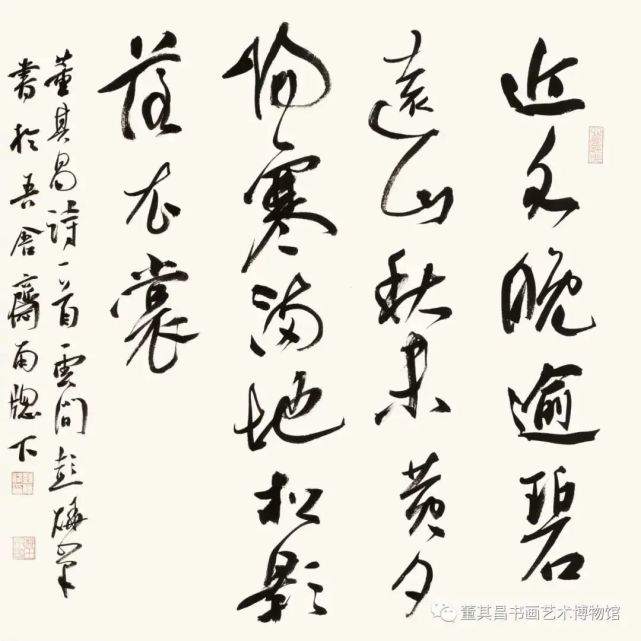 近水晚逾碧
遠山秋未黄夕
陽寒滿地松影
落衣裳
董其昌詩一首雲間彭
書於吾舍齋南牕下
董其昌书画艺术博物馆